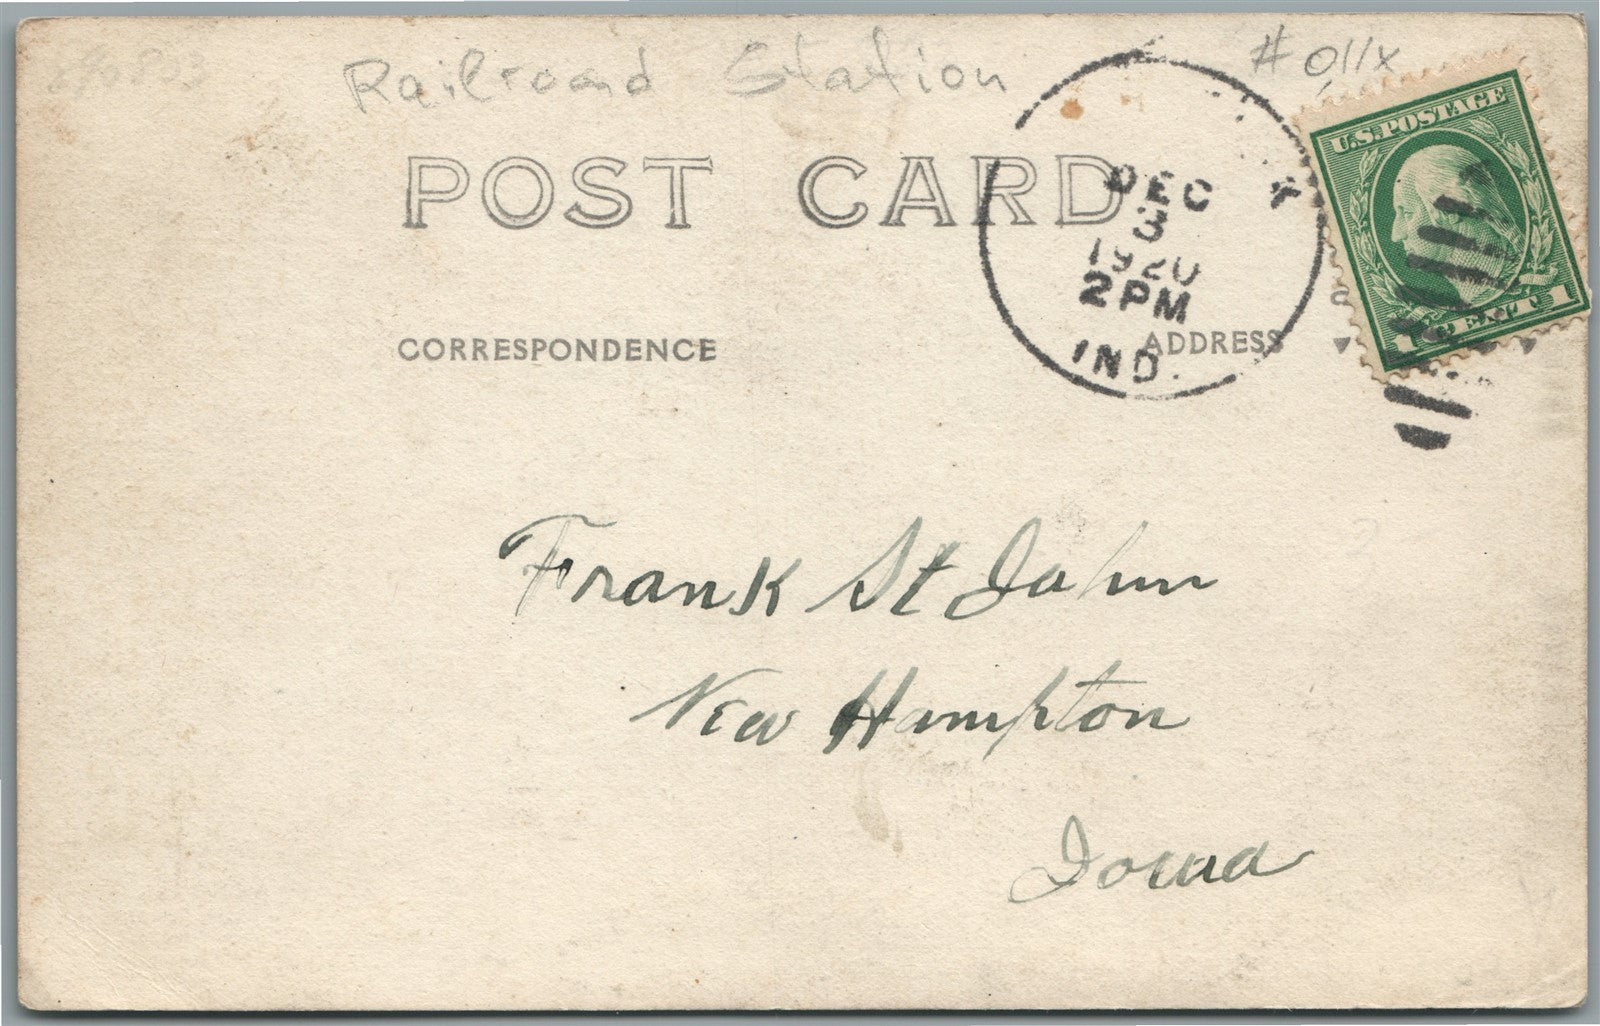 Railroad Station # 011x
POST CARD
U.S. POSTAGE
1 CENT 1
DEC
3
1920
2 PM
IND.
CORRESPONDENCE
ADDRESS
Frank St John
New Hampton
Iowa